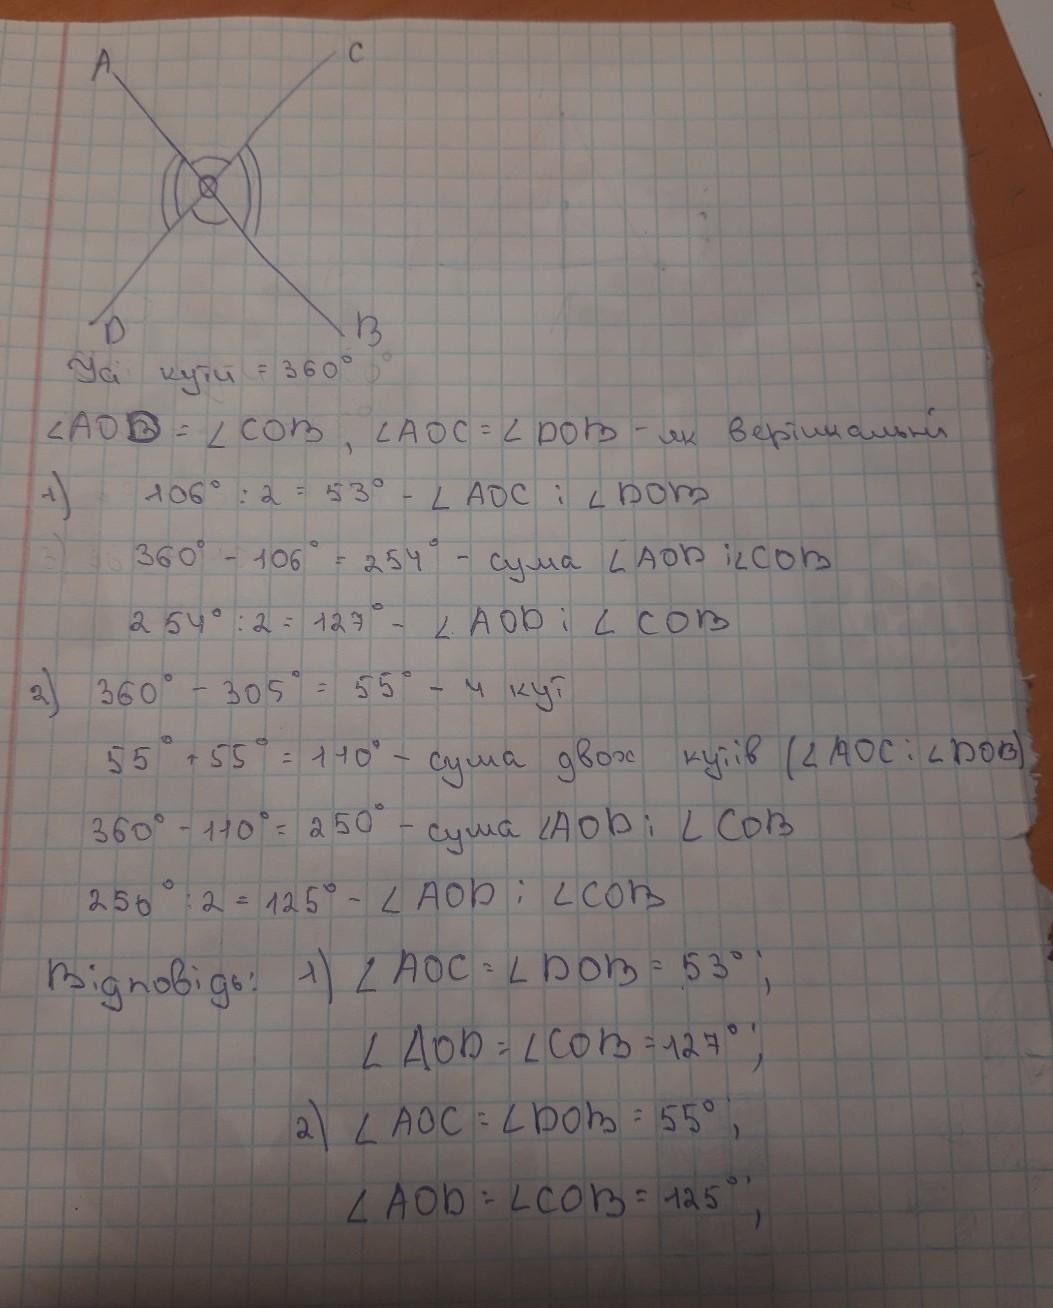 A
C
D
B
Усі кути = 360°
∠AOD = ∠COB, ∠AOC = ∠DOB - як вертикальні
1) 106° : 2 = 53° - ∠AOC і ∠DOB
360° - 106° = 254° - сума ∠AOD і ∠COB
254° : 2 = 127° - ∠AOD і ∠COB
2) 360° - 305° = 55° - 4 кут
55° + 55° = 110° - сума двох кутів (∠AOC і ∠DOB)
360° - 110° = 250° - сума ∠AOD і ∠COB
250° : 2 = 125° - ∠AOD і ∠COB
Відповідь: 1) ∠AOC = ∠DOB = 53°;
∠AOD = ∠COB = 127°;
2) ∠AOC = ∠DOB = 55°;
∠AOD = ∠COB = 125°;